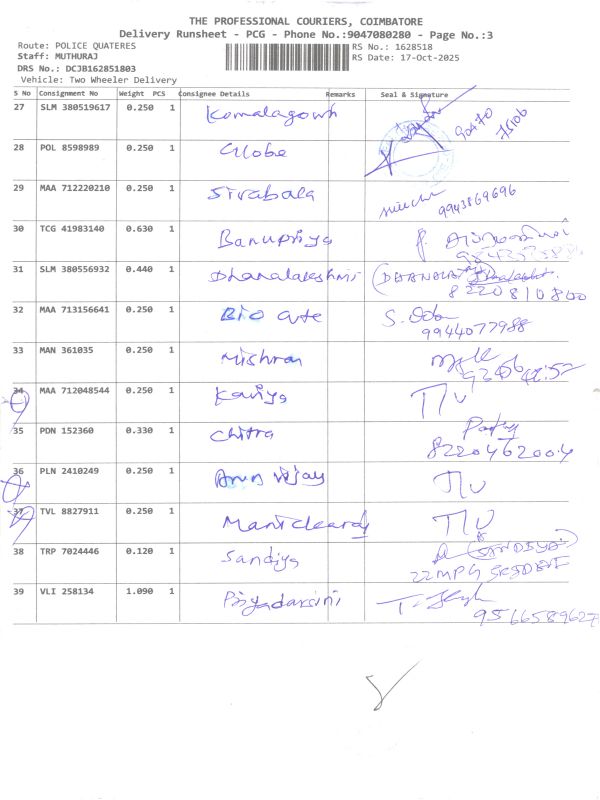 THE PROFESSIONAL COURIERS, COIMBATORE
Delivery Runsheet - PCG - Phone No.:9047080280 - Page No.:3
Route: POLICE QUATERES RS No.: 1628518
Staff: MUTHURAJ RS Date: 17-Oct-2025
DRS No.: DCJB162851803
Vehicle: Two Wheeler Delivery
S No Consignment No Weight PCS Consignee Details Remarks Seal & Signature
27 SLM 380519617 0.250 1 Komalagowh 90470 75106
28 POL 8598989 0.250 1 Globe
29 MAA 712220210 0.250 1 Sivabala 9943869696
30 TCG 41983140 0.630 1 Banupriya
31 SLM 380556932 0.440 1 Dhanalakshmi
8220810800
32 MAA 713156641 0.250 1 Bio cute
9944077988
33 MAN 361035 0.250 1 Mishran
34 MAA 712048544 0.250 1 Kaviya
35 PDN 152360 0.330 1 Chitra
8220462004
36 PLN 2410249 0.250 1 Arun vijay
37 TVL 8827911 0.250 1
38 TRP 7024446 0.120 1 Sandiya (SANDIYA)
39 VLI 258134 1.090 1 Priyadarsini
9566589627